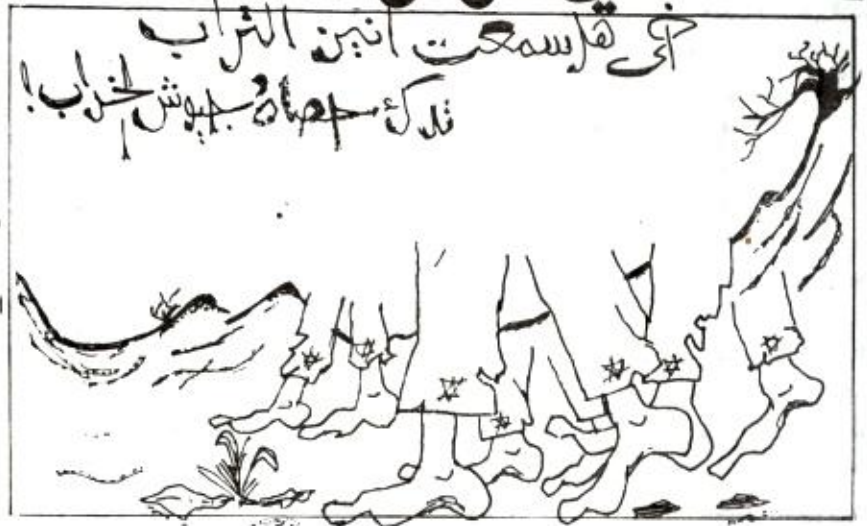 أخي هل سمعت أنين التراب
تدك حصاهُ جيوش الخراب!